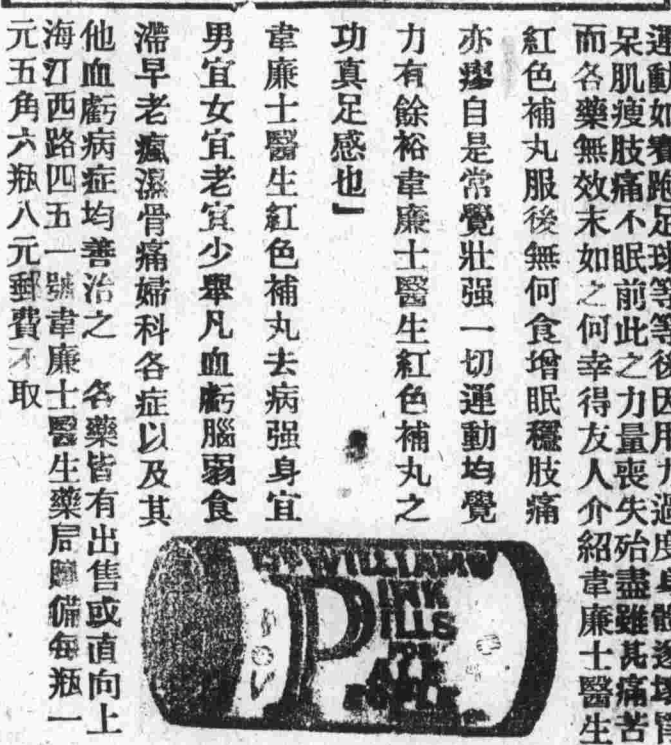 運動如賽跑足球等等後因用力過度身體遂壞胃
呆肌瘦肢痛不眠前此之力量喪失殆盡雖甚痛苦
而各藥無效末如之何幸得友人介紹韋廉士醫生
紅色補丸服後無何食增眠穩肢痛
亦瘳自是常覺壯强一切運動均覺
力有餘裕韋廉士醫生紅色補丸之
功真足感也」
韋廉士醫生紅色補丸去病强身宜
男宜女宜老宜少舉凡血虧腦弱食
滯早老瘋濕骨痛婦科各症以及其
他血虧病症均善治之 各藥皆有出售或直向上
海江西路四五一號韋廉士醫生藥局購備每瓶一
元五角六瓶八元郵費不取
WILLIAMS
PINK
PILLS
FOR
PEOPLE